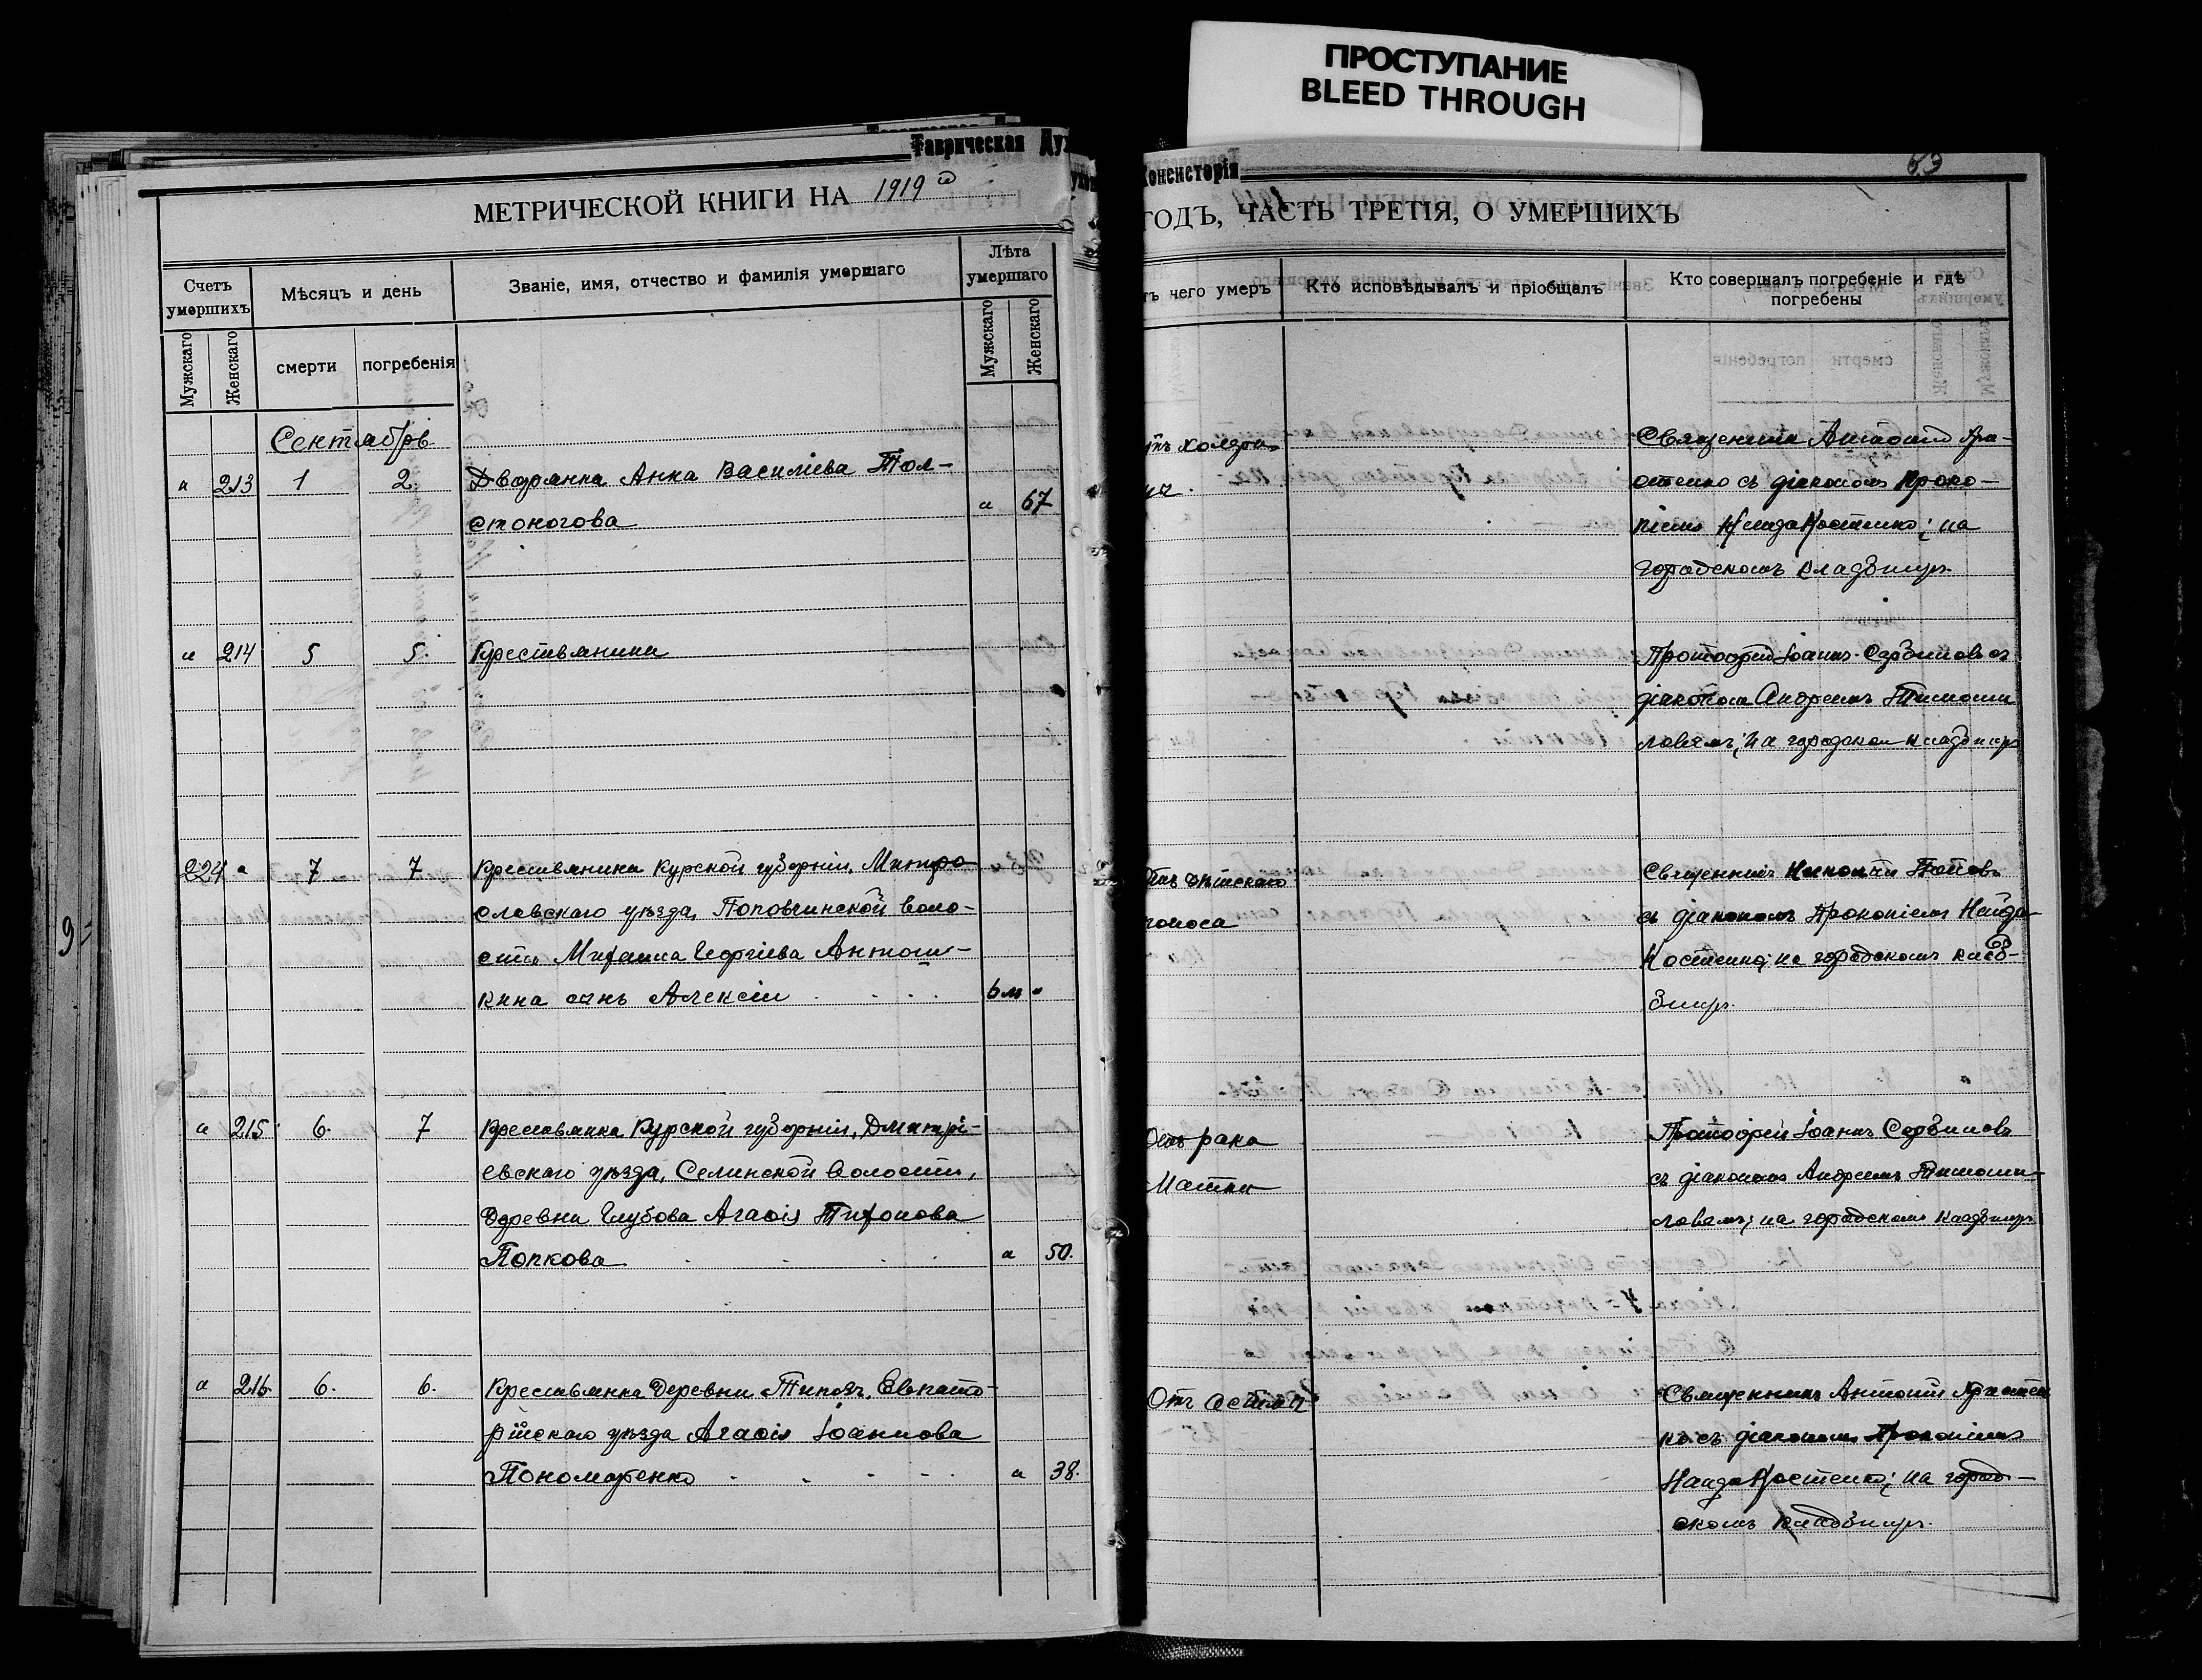 ПРОСТУПАНИЕ
BLEED THROUGH
Таврическая Дух
Консисторія
53
МЕТРИЧЕСКОЙ КНИГИ НА 1919
ГОДЪ, ЧАСТЬ ТРЕТІЯ, О УМЕРШИХЪ
Счетъ умершихъ
Мѣсяцъ и день
Званіе, имя, отчество и фамилія умершаго
Лѣта умершаго
тъ чего умеръ
Кто исповѣдывалъ и пріобщалъ
Кто совершалъ погребеніе и гдѣ погребены
Мужскаго
Женскаго
смерти
погребенія
Мужскаго
Женскаго
Сентябрь
213 1 2 Дворянка Анна Василіева Тол-
стоногова 67
тъ холеры
Священникъ Антоній
съ діакономъ Проко-
піемъ Найда Костенко; на
городскомъ кладбищѣ.
214 5 5. Крестьянина
Протоіерей Іоаннъ Сербиновъ съ
діакономъ Андреемъ Тимоши
ловымъ; на городском кладбищѣ
224 7 7 Крестьянина Курской губерніи,
славскаго уѣзда, Поповчинской воло-
сти Михаила Георгіева Антош-
кина сынъ Алексій 6 м
дѣтскаго
поноса
Священникъ Николай Поповъ
съ діакономъ Прокопіемъ Найда
Костенко; на городскомъ клад-
бищѣ.
215 6. 7 Крестьянка Курской губерніи, Дмитрі-
евскаго уѣзда, Селинской волости,
деревни Глубова Агафія Тихонова
Попкова 50.
Отъ рака
Матки
Протоіерей Іоаннъ Сербиновъ
съ діакономъ Андреемъ Тимоши-
ловымъ; на городскомъ кладбищѣ
216. 6. 6. Крестьянка деревни Типовъ, Евпато-
рійскаго уѣзда Агафія Іоаннова
Пономаренко 38.
Отъ астмы
Священникъ Антоній
ко съ діакономъ Прокопіемъ
Найда Костенко; на город-
скомъ кладбищѣ.
9